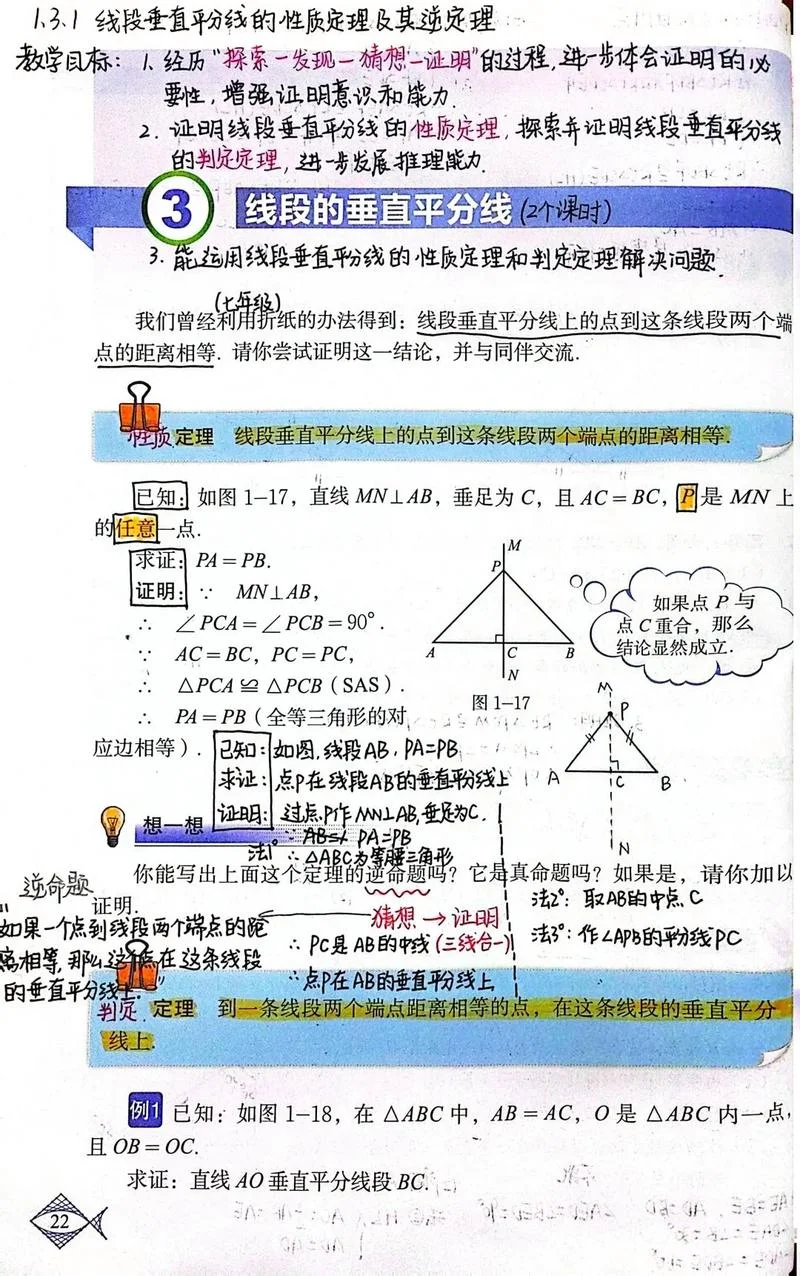 1.3.1 线段垂直平分线的性质定理及其逆定理
教学目标: 1. 经历"探索-发现-猜想-证明"的过程,进一步体会证明的必
要性,增强证明意识和能力.
2. 证明线段垂直平分线的性质定理,探索并证明线段垂直平分线
的判定定理,进一步发展推理能力.
3 线段的垂直平分线 (2个课时)
3. 能运用线段垂直平分线的性质定理和判定定理解决问题.
(七年级)
我们曾经利用折纸的办法得到:线段垂直平分线上的点到这条线段两个端
点的距离相等. 请你尝试证明这一结论,并与同伴交流.
性质 定理 线段垂直平分线上的点到这条线段两个端点的距离相等.
已知:如图 1-17,直线 MN⊥AB,垂足为 C,且 AC=BC,P 是 MN 上
的任意一点.
求证:PA=PB.
证明:∵ MN⊥AB,
∴ ∠PCA=∠PCB=90°.
∵ AC=BC,PC=PC,
∴ △PCA≌△PCB(SAS).
∴ PA=PB(全等三角形的对
应边相等).
M
P
A
C
B
N
图 1-17
如果点 P 与
点 C 重合,那么
结论显然成立.
M
P
A
C
B
N
已知:如图,线段AB,PA=PB
求证:点P在线段AB的垂直平分线上
证明:过点P作MN⊥AB,垂足为C.
法1° ∵ PA=PB
∴△ABC为等腰三角形
想一想
你能写出上面这个定理的逆命题吗?它是真命题吗?如果是,请你加以
证明.
逆命题
"如果一个点到线段两个端点的距
离相等,那么这个点在这条线段
的垂直平分线上."
猜想→证明
∴PC是AB的中线(三线合一)
∴点P在AB的垂直平分线上
法2°: 取AB的中点C
法3°: 作∠APB的平分线PC
判定 定理 到一条线段两个端点距离相等的点,在这条线段的垂直平分
线上.
例1 已知:如图 1-18,在 △ABC 中,AB=AC,O 是 △ABC 内一点,
且 OB=OC.
求证:直线 AO 垂直平分线段 BC.
22